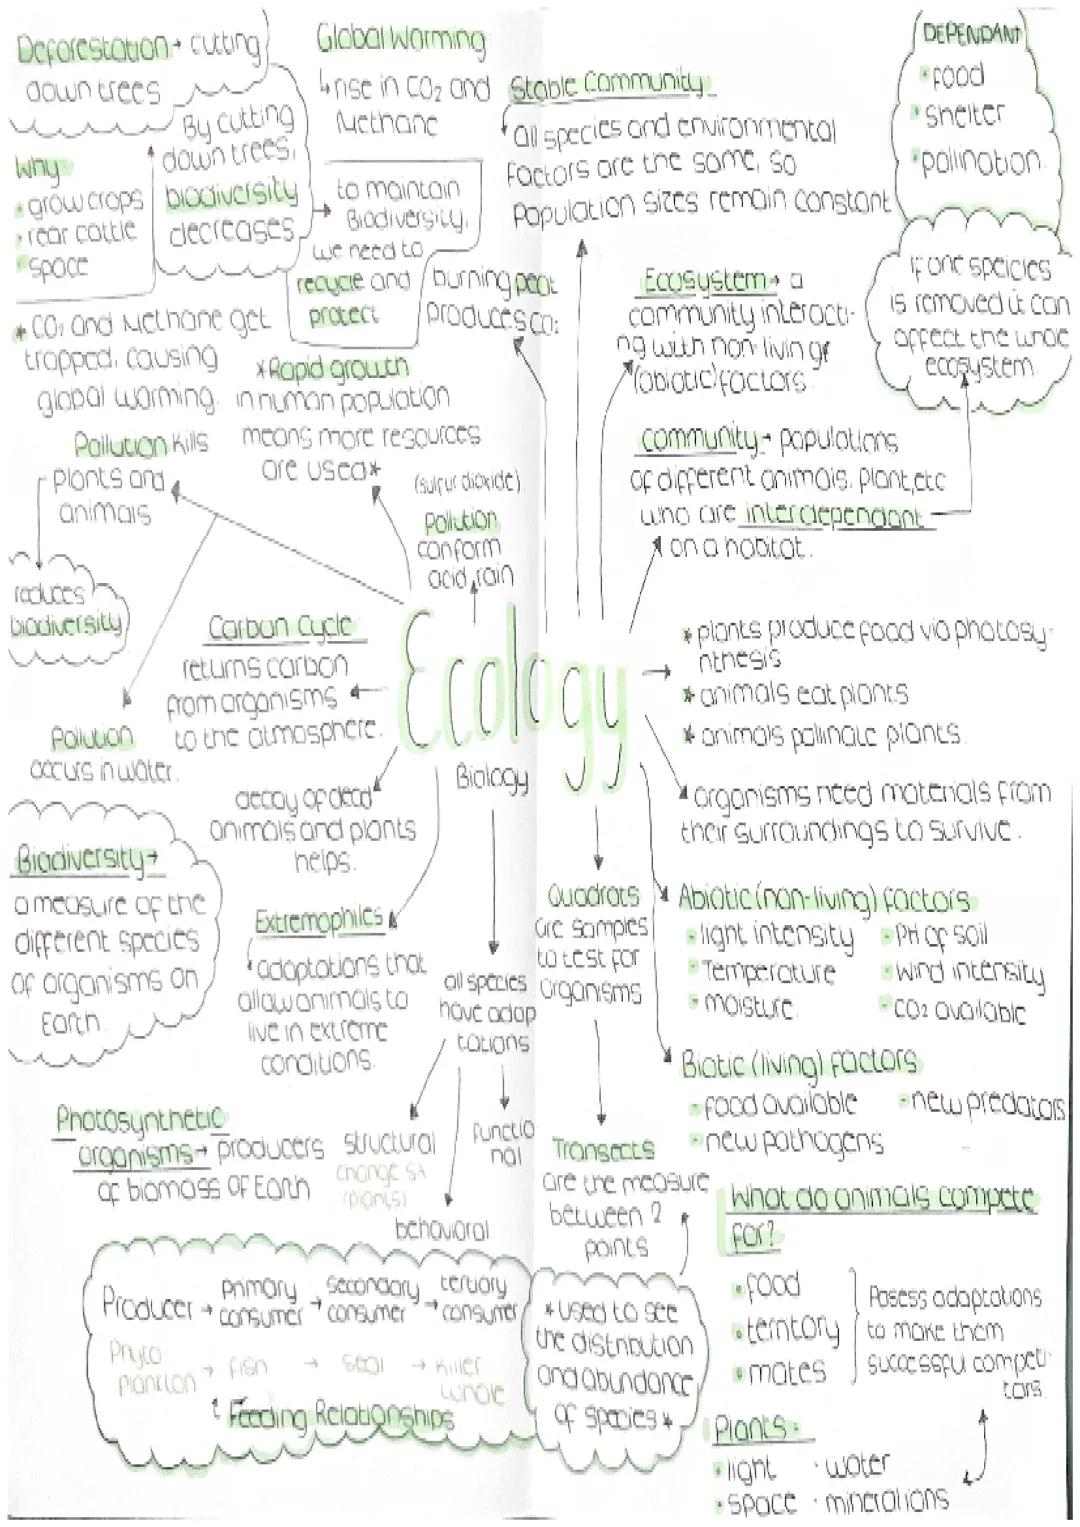 Deforestation → cutting
down trees
By cutting
down trees,
biodiversity
decreases
Why
• grow crops
• rear cattle
• space
Global Warming
↳ rise in CO2 and
Methane
to maintain
Biodiversity,
we need to
recycle and
protect
burning peat
produces CO2
Stable Community
all species and environmental
factors are the same, so
population sizes remain constant
DEPENDANT
• food
• shelter
• pollination.
If one speicies
is removed it can
affect the whole
ecosystem.
Ecosystem → a
community interacti-
ng with non-living
(abiotic) factors.
* CO2 and Methane get
trapped, causing
global warming.
* Rapid growth
in human population
means more resources
are used *
community → populations
of different animals, plant, etc
who are interdependant
on a habitat.
Pollution kills
plants and
animals
reduces
biodiversity
Pollution
occurs in water.
(sulfur dioxide)
Pollution
can form
acid rain
Carbon Cycle
returns carbon
from organisms
to the atmosphere.
Ecology
Biology
* plants produce food via photosy-
nthesis
* animals eat plants
* animals pollinate plants.
decay of dead
animals and plants
helps.
organisms need materials from
their surroundings to survive.
Biodiversity →
a measure of the
different species
of organisms on
Earth.
Extremophiles
adaptations that
allow animals to
live in extreme
conditions.
all species
have adap
tations
structural
(plants)
behavioral
functio
nal
Quadrats
are samples
to test for
Organisms
Transects
are the measure
between 2
points
* used to see
the distribution
and abundance
of species *
Abiotic (non-living) factors
• light intensity
• PH of soil
• Temperature
• Wind intensity
• moisture.
• CO2 available
Biotic (living) factors
• food available
• new predators
• new pathogens
Photosynthetic
organisms → producers
of biomass of Earth
Producer → primary consumer → secondary consumer → tertiary consumer
Phyto plankton → fish → seal → killer whale
Feeding Relationships
What do animals compete
for?
• food
• territory
• mates
Posess adaptations
to make them
successful competi-
tors.
Plants.
• light • water
• space • mineral ions